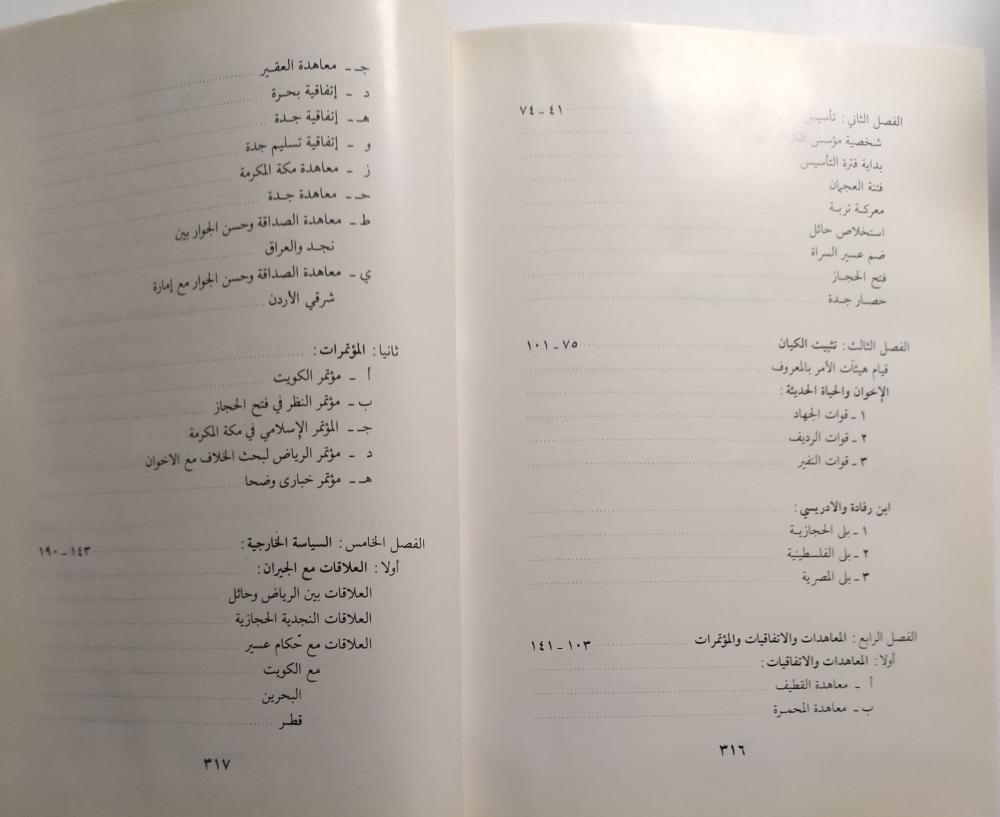 الفصل الثاني: تأسيس ٤١ - ٧٤
شخصية مؤسس
بداية فترة التأسيس
فتنة العجمان
معركة تربة
استخلاص حائل
ضم عسير السراة
فتح الحجاز
حصار جدة
الفصل الثالث: تثبيت الكيان ٧٥ - ١٠١
قيام هيئات الأمر بالمعروف
الإخوان والحياة الحديثة:
١ - قوات الجهاد
٢ - قوات الرديف
٣ - قوات النفير
ابن رفادة والادريسي:
١ - بلى الحجازية
٢ - بلى الفلسطينية
٣ - بلى المصرية
الفصل الرابع: المعاهدات والاتفاقيات والمؤتمرات ١٠٣ - ١٤١
أولا: المعاهدات والاتفاقيات:
أ - معاهدة القطيف
ب - معاهدة المحمرة
٣١٦
جـ - معاهدة العقير
د - إتفاقية بحرة
هـ - إتفاقية جدة
و - إتفاقية تسليم جدة
ز - معاهدة مكة المكرمة
حـ - معاهدة جدة
ط - معاهدة الصداقة وحسن الجوار بين
نجد والعراق
ي - معاهدة الصداقة وحسن الجوار مع إمارة
شرقي الأردن
ثانيا: المؤتمرات:
أ - مؤتمر الكويت
ب - مؤتمر النظر في فتح الحجاز
جـ - المؤتمر الإسلامي في مكة المكرمة
د - مؤتمر الرياض لبحث الخلاف مع الاخوان
هـ - مؤتمر خبارى وضحا
الفصل الخامس: السياسة الخارجية: ١٤٣ - ١٩٠
أولا: العلاقات مع الجيران:
العلاقات بين الرياض وحائل
العلاقات النجدية الحجازية
العلاقات مع حّكام عسير
مع الكويت
البحرين
قطر
٣١٧